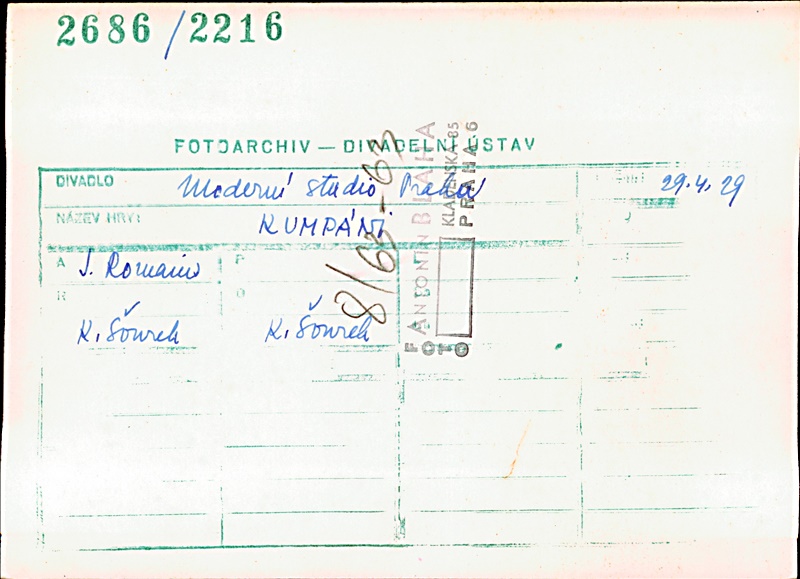 2686/2216
FOTOARCHIV — DIVADELNÍ ÚSTAV
DIVADLO Moderní studio Praha 29.4.29
NÁZEV HRY: KUMPÁNI
A J. Romains P
R O
K. Šourek K. Šourek
8/63-67
FOTO ANTONÍN BLAHA
KLADENSKÁ 85
PRAHA 6